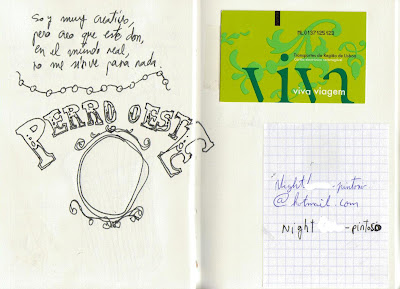 Soy muy creativo,
pero creo que este don,
en el mundo real,
no me sirve para nada.
PERRO OESTE
Transportes da Região de Lisboa
viva
viva viagem
"Night
-pintor
@hotmail.com
Night
-pintos